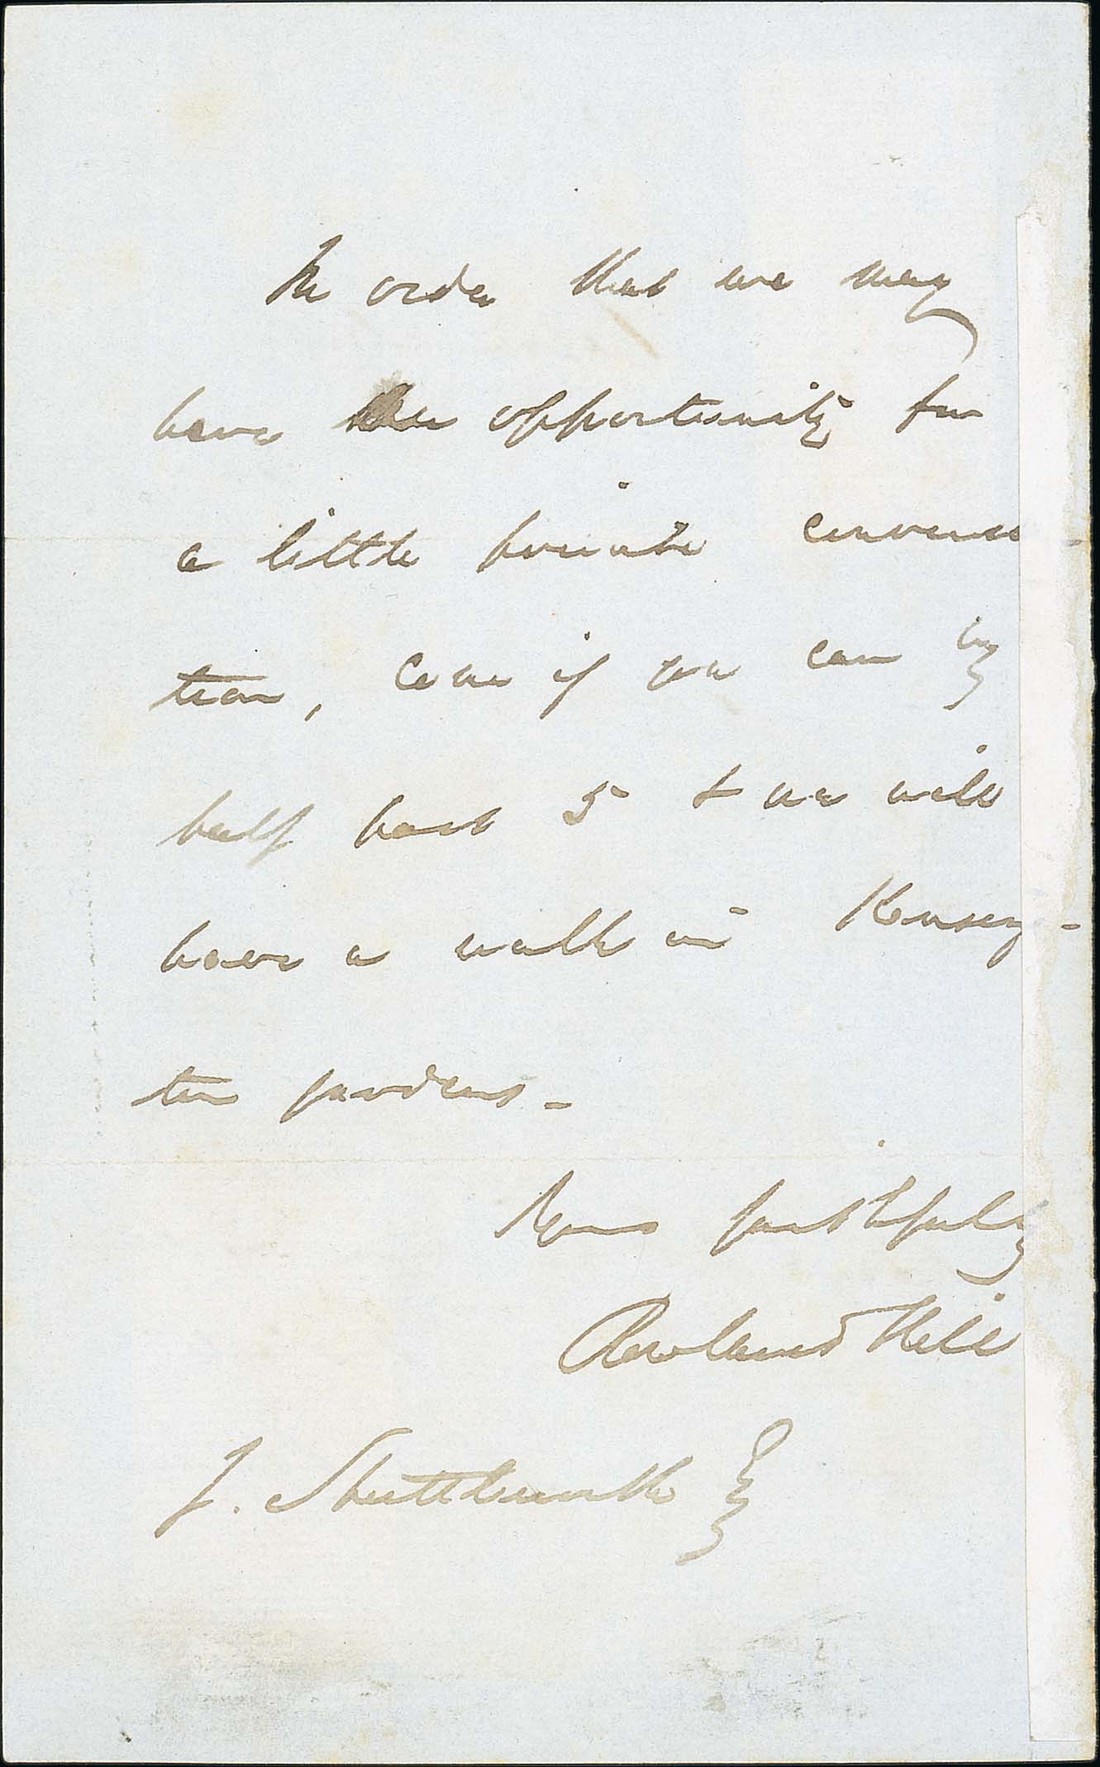 In order that we may
have an opportunity for
a little private conversa
tion, come if you can by
half past 5 & we will
have a walk in Kensing-
ton gardens -
Yours faithfully
Rowland Hill
J. Shuttleworth Esq